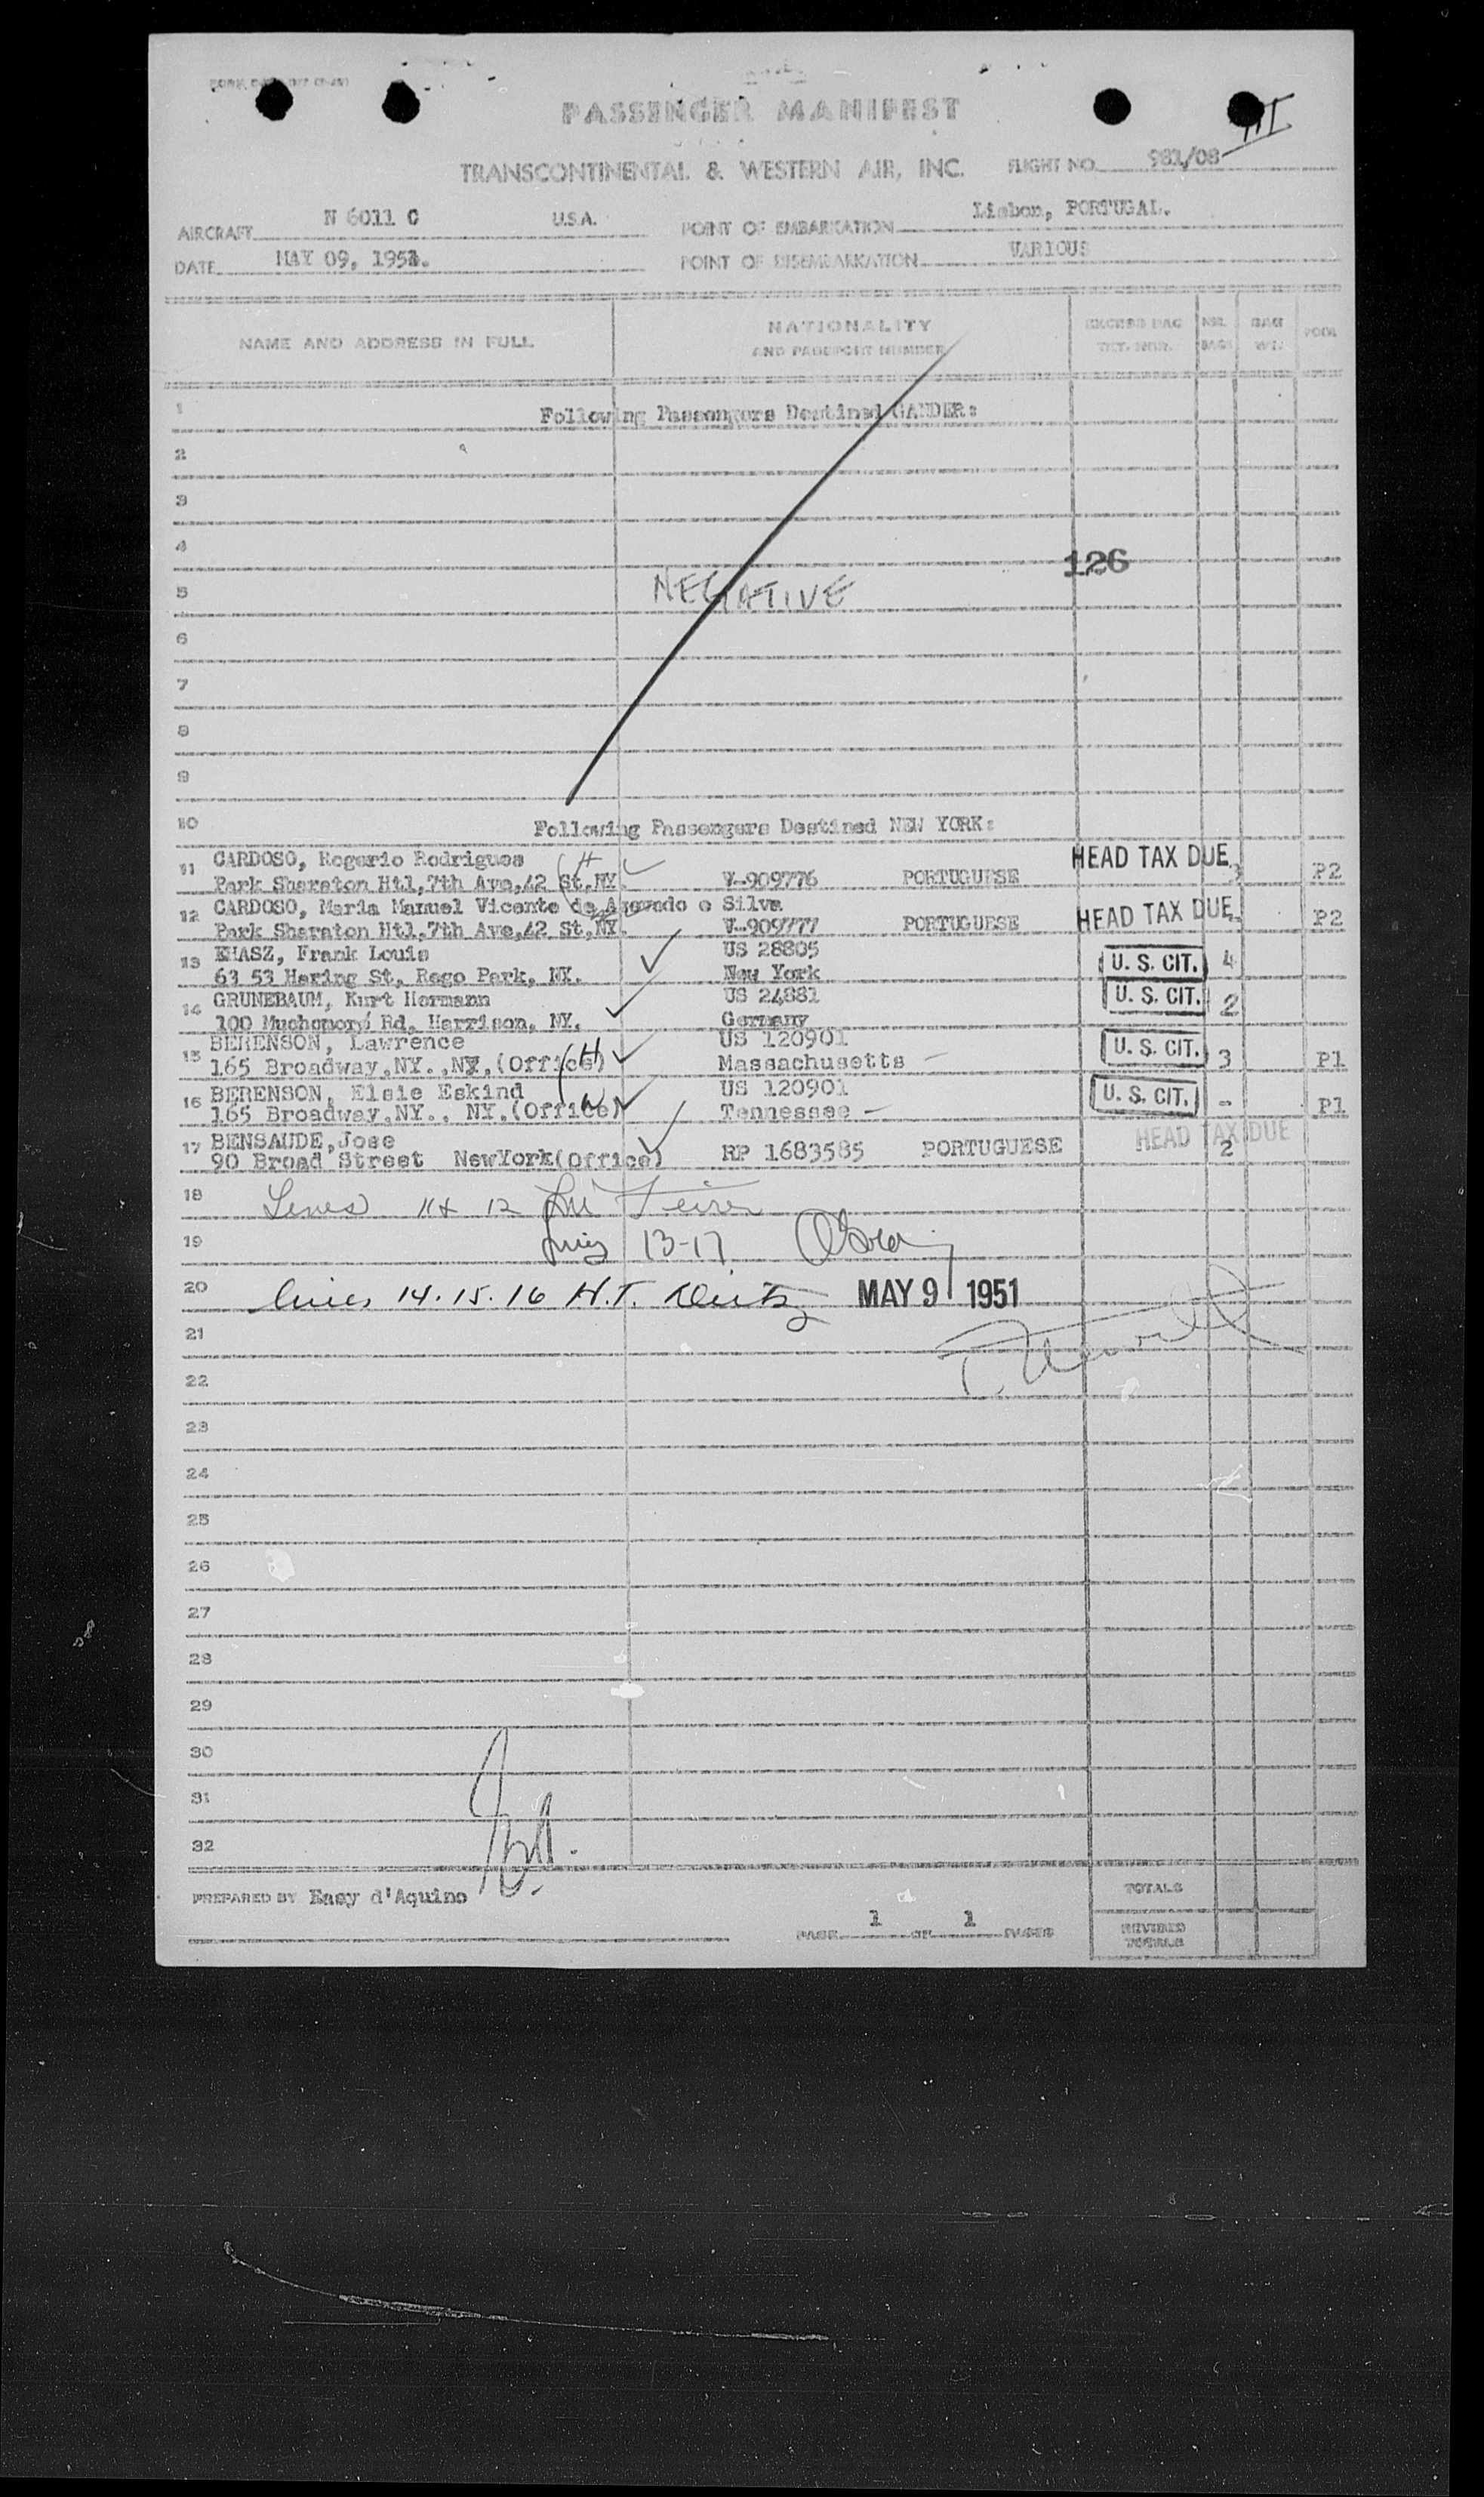 III
PASSENGER MANIFEST
TRANSCONTINENTAL & WESTERN AIR, INC. FLIGHT NO. 981/08
AIRCRAFT N 6011 C U.S.A. POINT OF EMBARKATION Lisbon, PORTUGAL.
DATE MAY 09, 1951. POINT OF DISEMBARKATION VARIOUS
NAME AND ADDRESS IN FULL NATIONALITY AND PASSPORT NUMBER EXCESS BAG TKT. NBR. NBR. BAGS BAG WT. POOL
1 Following Passengers Destined GANDER:
2
3
4
126
5 NEGATIVE
6
7
8
9
10 Following Passengers Destined NEW YORK:
11 CARDOSO, Rogerio Rodrigues H HEAD TAX DUE
Park Sharaton Htl,7th Ave,42 St,NY. V-909776 PORTUGUESE 3 P2
12 CARDOSO, Maria Manuel Vicente de Azevedo e Silva
Park Sharaton Htl,7th Ave,42 St,NY. V-909777 PORTUGUESE HEAD TAX DUE - P2
13 EHASZ, Frank Louis US 28805
63 53 Haring St, Rego Park, NY. New York U. S. CIT. 4
14 GRUNEBAUM, Kurt Hermann US 24881
100 Muchomoré Rd, Harrison, NY. Germany U. S. CIT. 2
15 BERENSON, Lawrence US 120901
165 Broadway,NY.,NY,(Office) H Massachusetts - U. S. CIT. 3 P1
16 BERENSON, Elsie Eskind US 120901
165 Broadway,NY., NY.(Office) W Tennessee - U. S. CIT. - P1
17 BENSAUDE,Jose HEAD TAX DUE
90 Broad Street NewYork(Office) RP 1683585 PORTUGUESE 2
18 Lines 11 & 12
19 13-17
20 Lines 14.15.16 H.T. MAY 9 1951
21
22
23
24
25
26
27
28
29
30
31
32
PREPARED BY Easy d'Aquino TOTALS
PAGE 1 OF 1 PAGES REVISED TOTALS